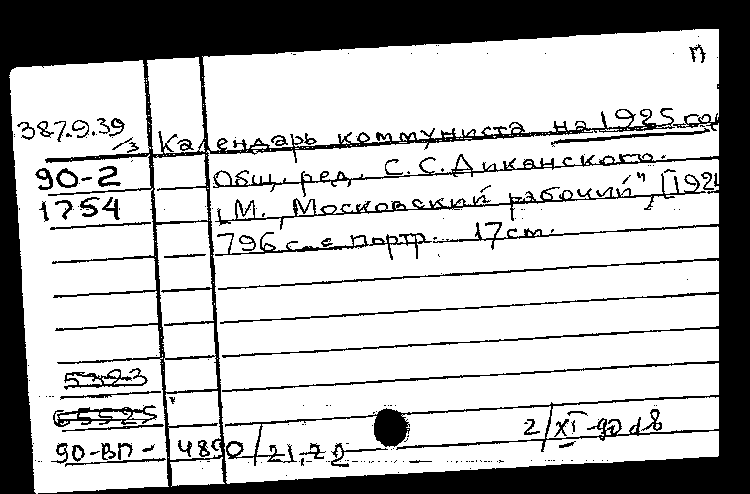 П
387.9.39
/3 Календарь коммуниста на 1925 год
90-2 Общ. ред. С.С. Диканского.
1754 М., „Московский рабочий", [192
796 с. с портр. 17 см.
5323
65525
90-ВП- 4890/21,22
2/XI-90